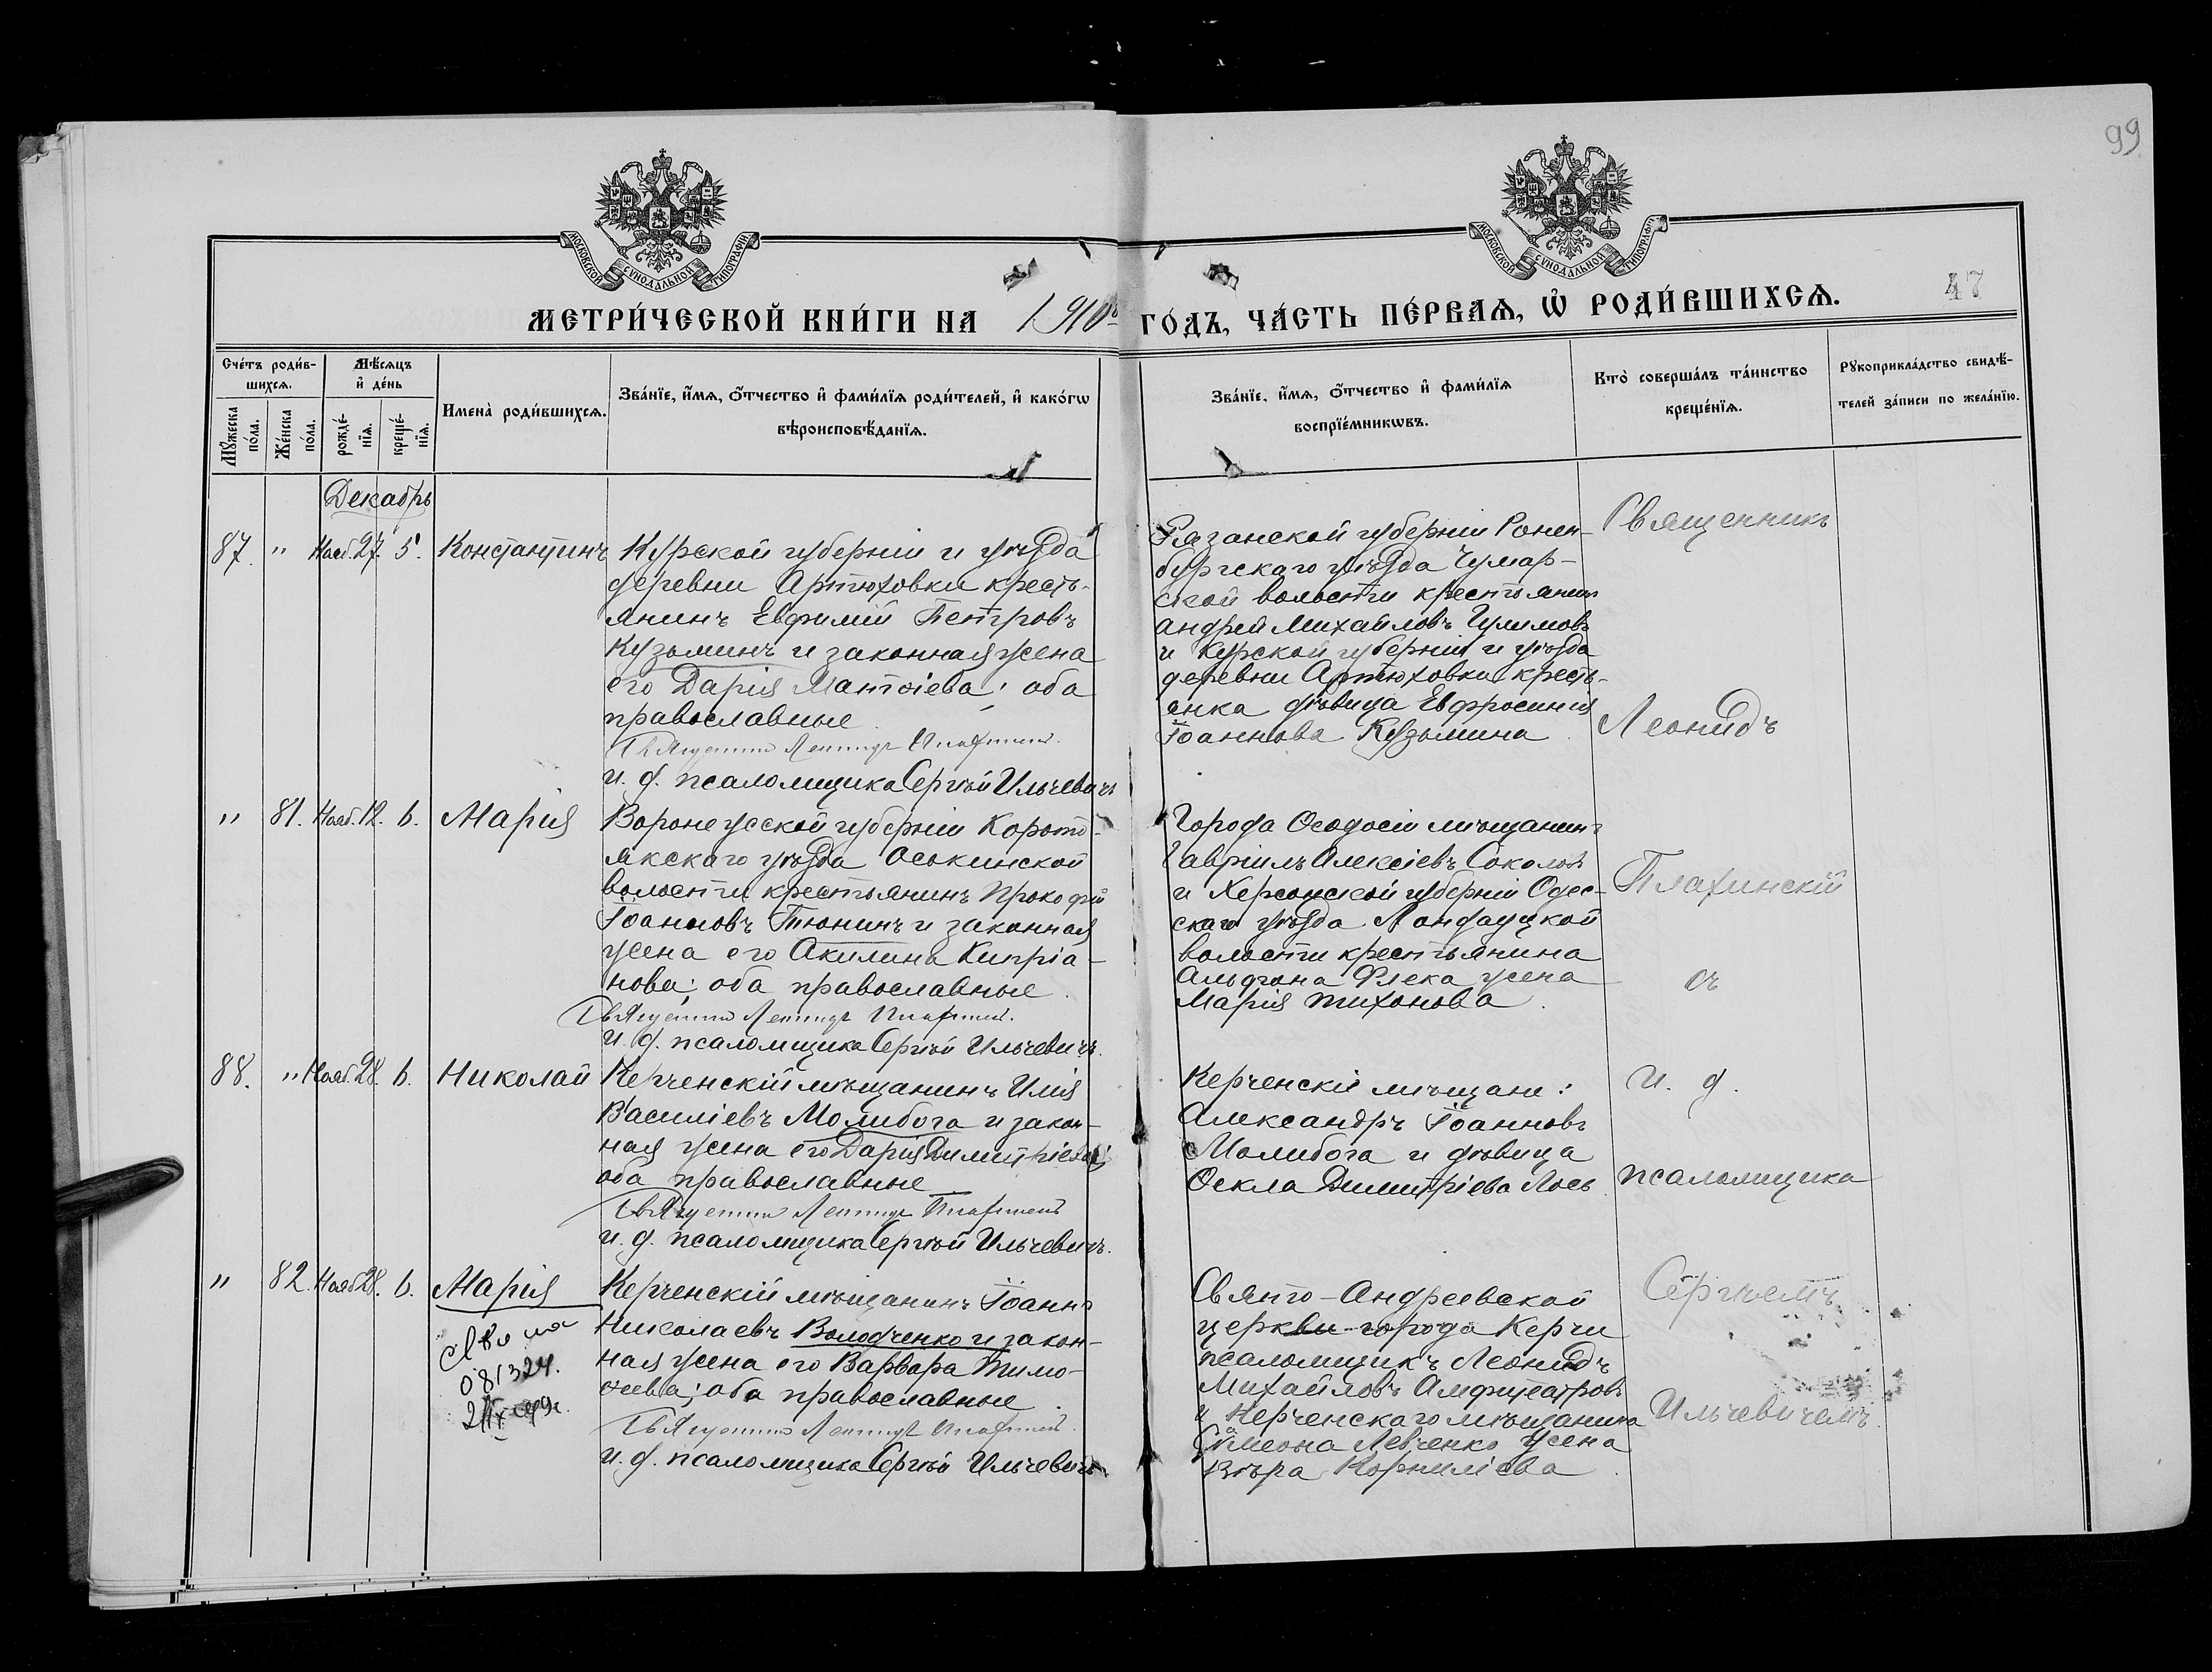 99
МОСКОВСКОЙ СѴНОДАЛЬНОЙ ТИПОГРАФІИ
МОСКОВСКОЙ СѴНОДАЛЬНОЙ ТИПОГРАФІИ
47
МЕТРИ́ЧЕСКОЙ КНИ́ГИ НА 1910й ГО́ДЪ, ЧА́СТЬ ПЕ́РВАѦ, Ѡ҆ РОДИ́ВШИХСѦ.
Сче́тъ роди́в-
шихсѧ.
Мꙋ́жеска по́ла.
Же́нска по́ла.
Мѣ́сѧцъ и҆ де́нь
рожде́-нїѧ.
креще́-нїѧ.
Имена̀ роди́вшихсѧ.
Зва́нїе, и҆́мѧ, ѻ҆́тчество и҆ фами́лїѧ роди́телей, и҆ како́гѡ
вѣроисповѣ́данїѧ.
Зва́нїе, и҆́мѧ, ѻ҆́тчество и҆ фами́лїѧ
воспрїе́мникѡвъ.
Кто̀ соверша́лъ та́инство
креще́нїѧ.
Рꙋкоприкла́дство свидѣ́-
телей за́писи по жела́нїю.
Декабрь
87. " Нояб. 27. 5. Константинъ
Курской губерніи и уѣзда
деревни Артюховки кресть-
янинъ Евфимій Петровъ
Кузьминъ и законная жена
его Дарія Матѳіева; оба
православные.
Священникъ Леонидъ
и. д. псаломщика Сергѣй Ильчевичъ
Рязанской губерніи Ранен-
бургскаго уѣзда
ской волости крестьянинъ
Андрей Михайловъ
и Курской губерніи и уѣзда
деревни Артюховки кресть-
янка дѣвица Евфросинія
Іоаннова Кузьмина.
" 81. Нояб. 12. 6. Марія
Воронежской губерніи Корото-
якскаго уѣзда Оськинской
волости крестьянинъ Прокофій
Іоанновъ Тюнинъ и законная
жена его Акилина Кипріа-
нова; оба православные.
Священникъ Леонидъ
и. д. псаломщика Сергѣй Ильчевичъ.
Города Ѳеодосіи мѣщанинъ
Гавріилъ Алексіевъ Соколовъ
и Херсонской губерніи Одес-
скаго уѣзда Ландауской
волости крестьянина
Альфона Флека жена
Марія Тихонова.
88. " Нояб. 28. 6. Николай
Керченскій мѣщанинъ Илія
Василіевъ Молибога и закон-
ная жена его Дарія Димитріева;
оба православные
Священникъ Леонидъ
и. д. псаломщика Сергѣй Ильчевичъ.
Керченскіе мѣщане:
Александръ Іоанновъ
Молибога и дѣвица
Ѳекла Димитріева Лось.
" 82. Нояб. 28. 6. Марія
081324.
Керченскій мѣщанинъ Іоаннъ
Николаевъ Володченко и закон-
ная жена его Варвара Тимо-
ѳеева; оба православные.
Священникъ Леонидъ
и. д. псаломщика Сергѣй Ильчевичъ.
Свято-Андреевской
церкви города Керчи
псаломщикъ Леонидъ
Михайловъ Амфитеатровъ
и Керченскаго мѣщанина
Симеона Левченко жена
Вѣра Корниліева.
Священникъ
Леонидъ
съ
и. д.
псаломщика
Сергѣемъ
Ильчевичемъ.